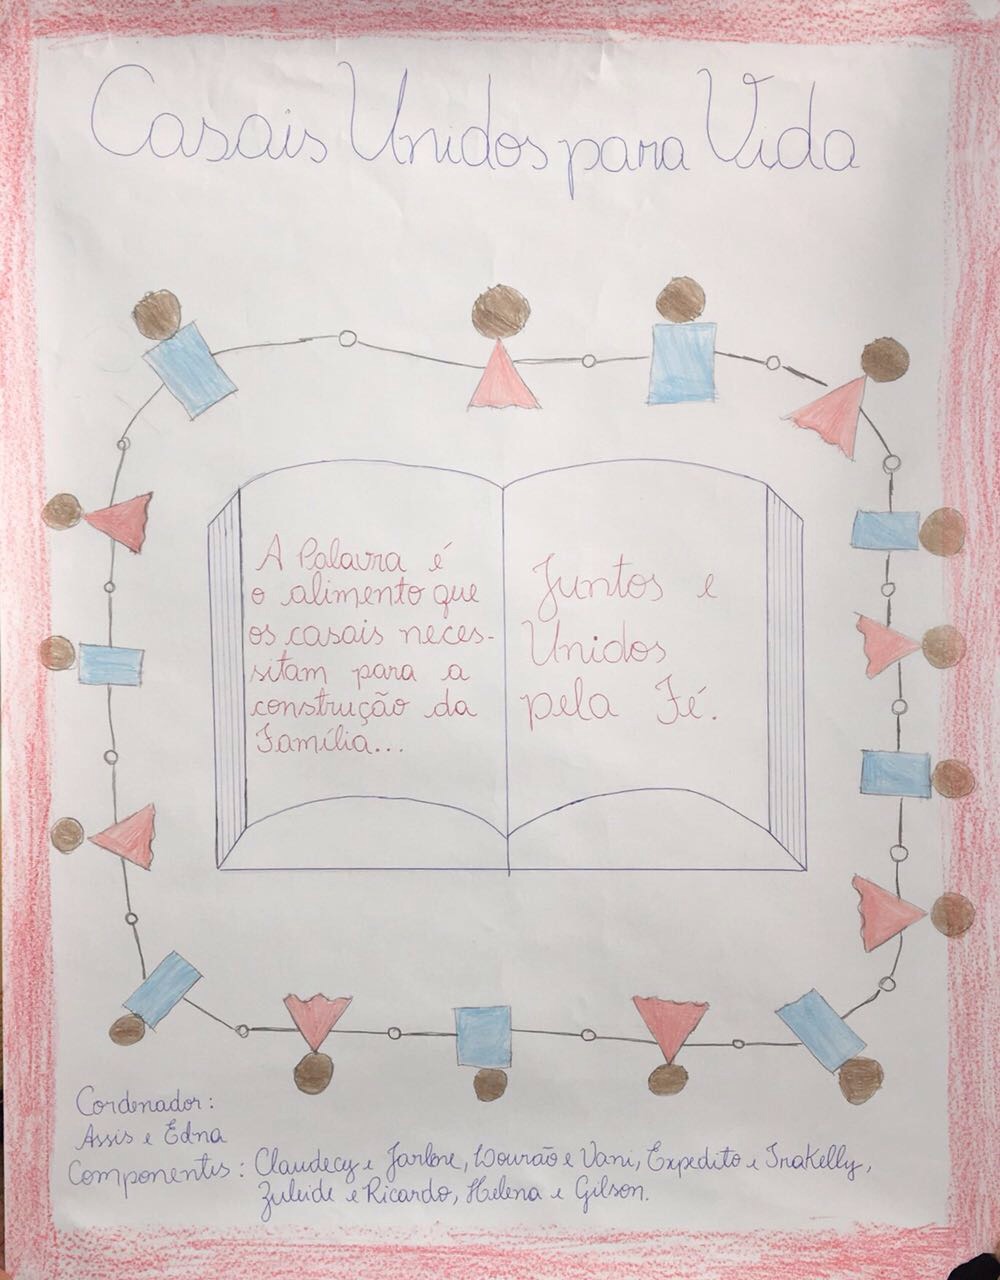 Casais Unidos para Vida
A Palavra é
o alimento que
os casais neces-
sitam para a
construção da
Família...
Juntos e
Unidos
pela Fé.
Cordenador:
Assis e Edna
Componentes: Claudecy e Jarlene, Dourão e Vani, Expedito e Irakelly,
Zuleide e Ricardo, Helena e Gilson.